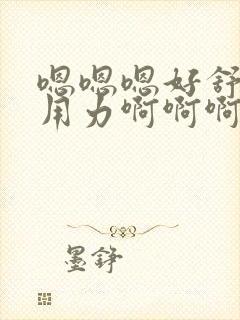 嗯嗯嗯好舒
用力啊啊啊
墨铮